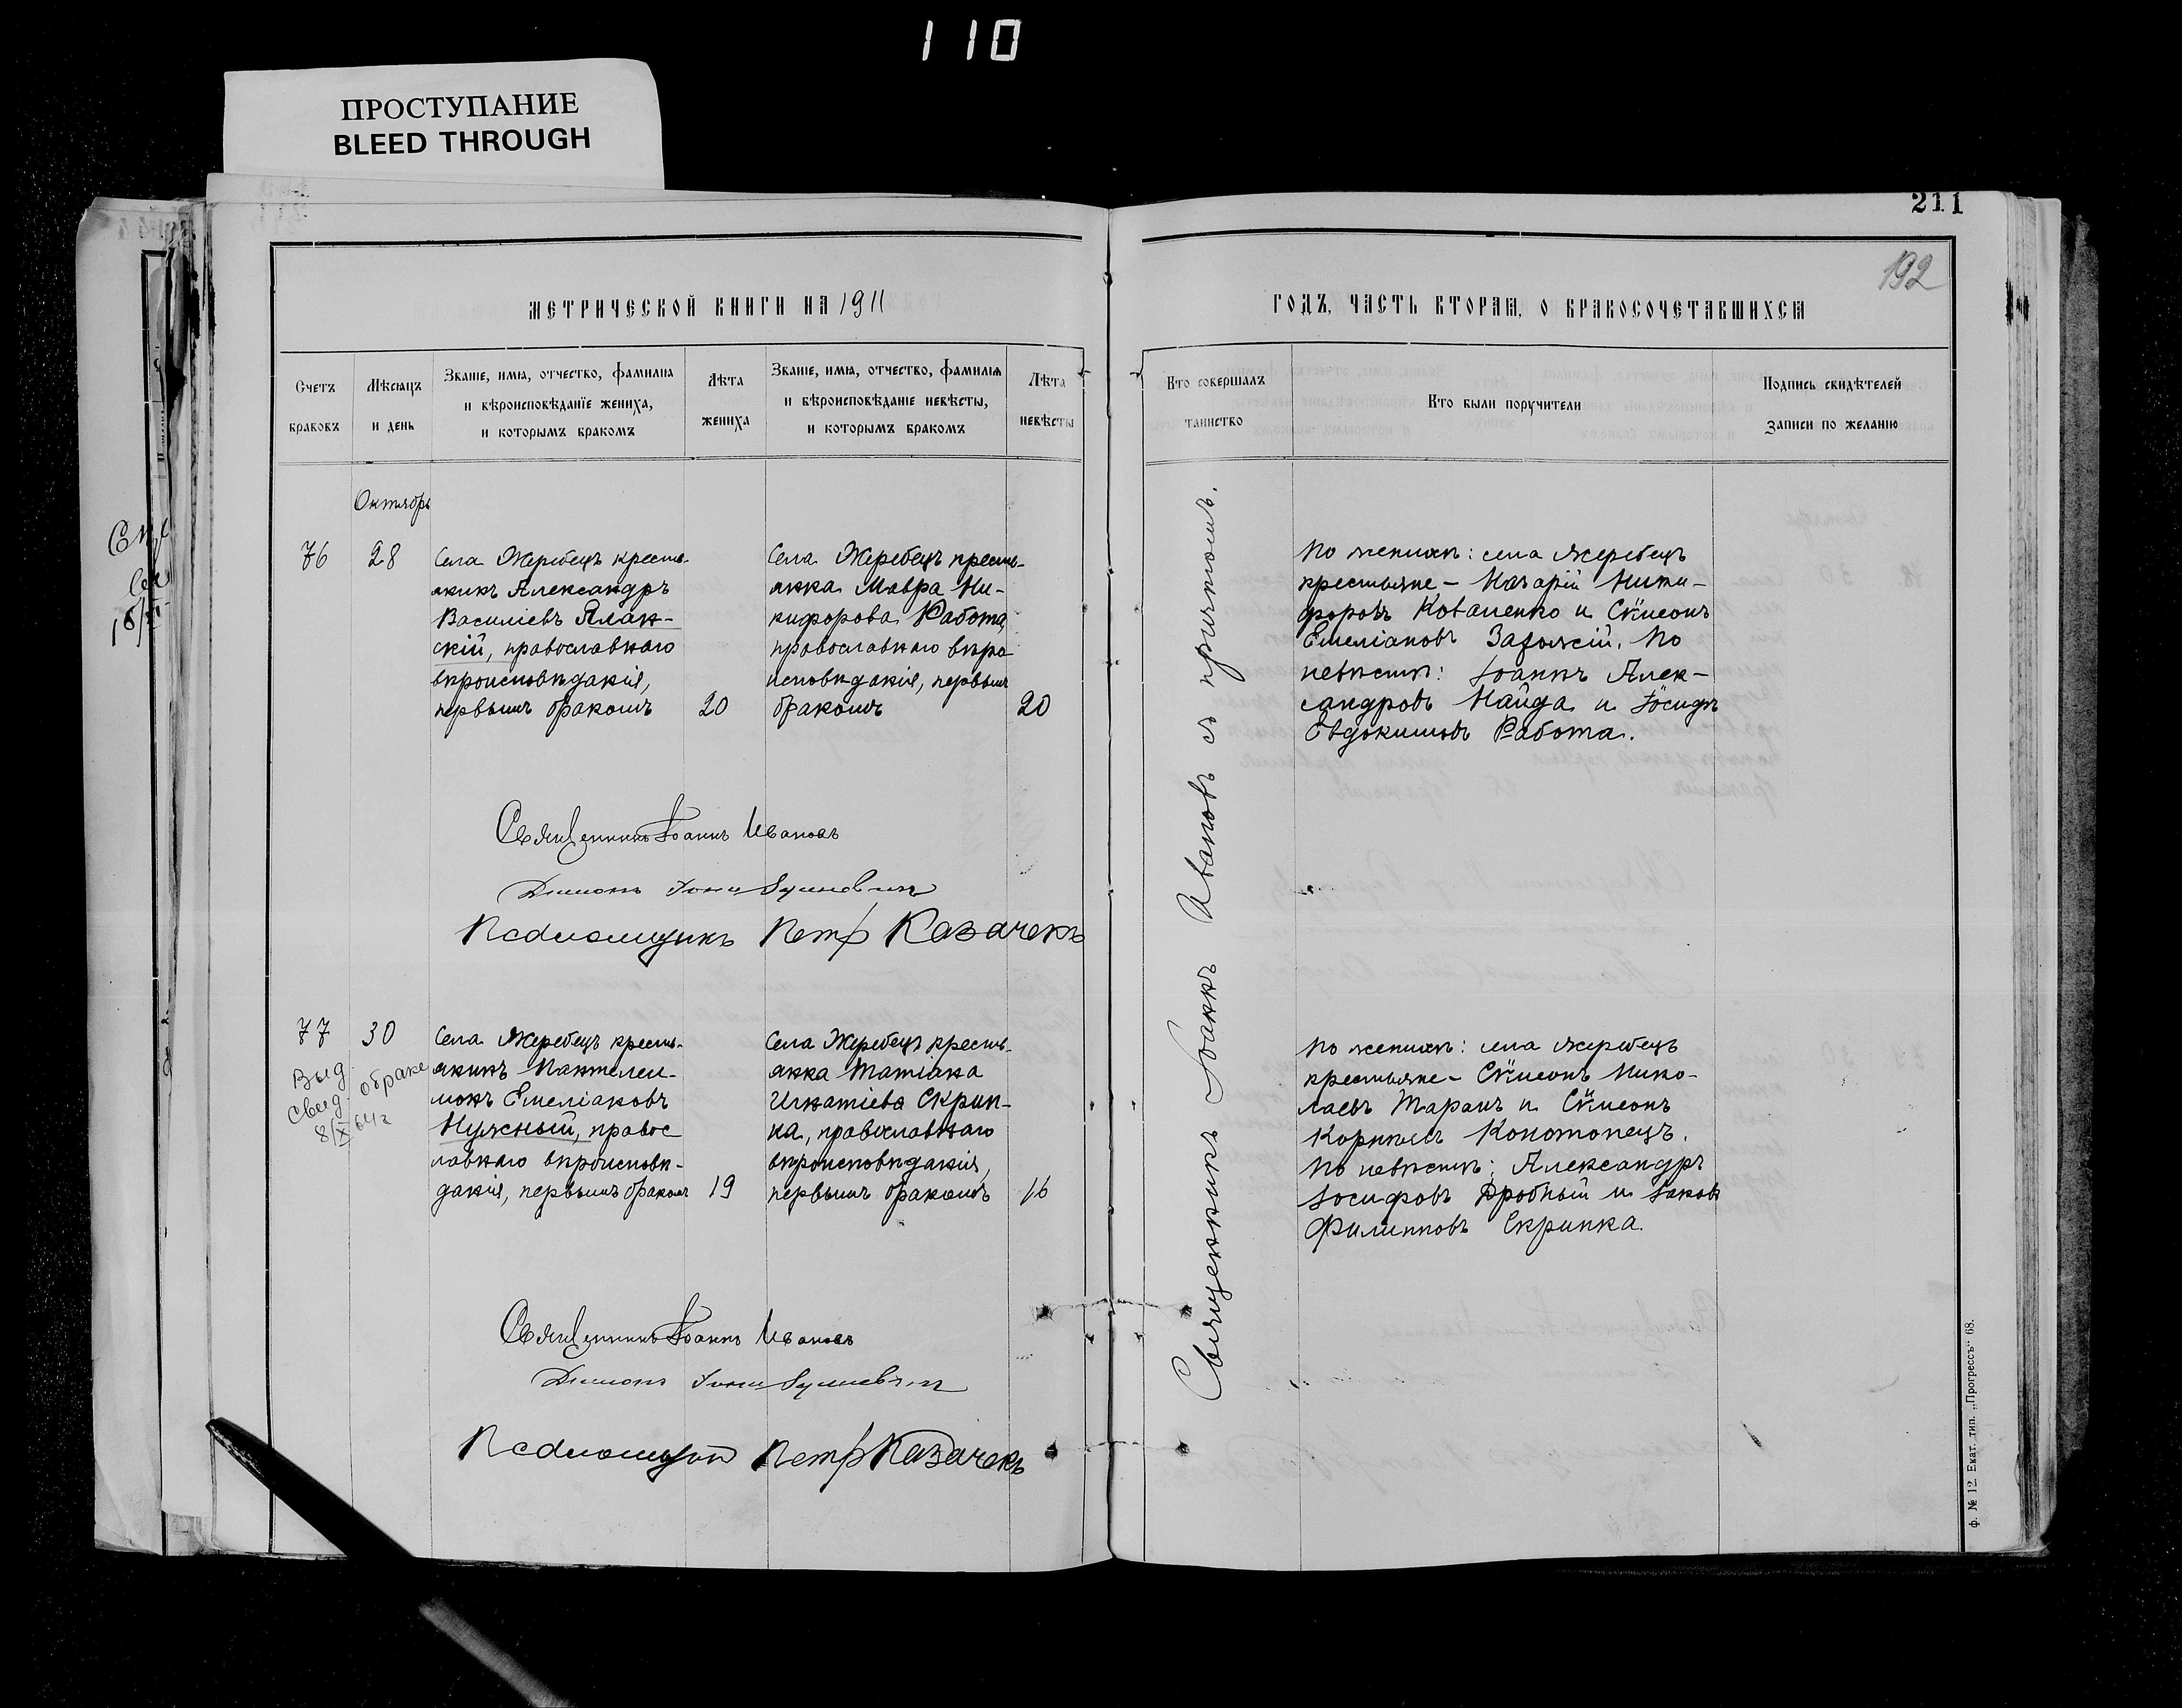 110
ПРОСТУПАНИЕ
BLEED THROUGH
211
192
МЕТРИЧЕСКОЙ КНИГИ НА 1911
ГОДЪ, ЧАСТЬ ВТОРАЯ, О БРАКОСОЧЕТАВШИХСЯ
Счетъ браковъ
Мѣсяцъ и день
Званіе, имя, отчество, фамилія
и вѣроисповѣданіе жениха,
и которымъ бракомъ
Лѣта жениха
Званіе, имя, отчество, фамилія
и вѣроисповѣданіе невѣсты,
и которымъ бракомъ
Лѣта невѣсты
Кто совершалъ таинство
Кто были поручители
Подпись свидѣтелей
записи по желанію
Октябрь
76
28
Села Жеребецъ кресть-
янинъ Александръ
Василіевъ Ялан-
скій, православнаго
вѣроисповѣданія,
первымъ бракомъ
20
Села Жеребецъ кресть-
янка Мавра Ни-
кифорова Работа,
православнаго вѣро
исповѣданія, первымъ
бракомъ
20
Священникъ Іоаннъ Ивановъ съ причтомъ.
По женихѣ: села Жеребецъ
крестьяне – Назарій Ники-
форовъ Коваленко и Сѵмеонъ
Емеліановъ. По
невѣстѣ: Іоаннъ Алек-
сандровъ Найда и Іосифъ
Евдокимовъ Работа.
Священникъ Іоаннъ Ивановъ
Псаломщикъ Петръ Казачекъ
77
30
Выд.
свид. о браке
8/X 64 г
Села Жеребецъ кресть-
янинъ Пантелеи-
монъ Емеліановъ
Нужный, правос
лавнаго вѣроисповѣ-
данія, первымъ бракомъ
19
Села Жеребецъ кресть-
янка Татіана
Игнатіева Скрип-
ка, православнаго
вѣроисповѣданія,
первымъ бракомъ
16
По женихѣ: села Жеребецъ
крестьяне – Сѵмеонъ Нико-
лаевъ Таранъ и Сѵмеонъ
Корниліевъ Конотопецъ.
По невѣстѣ: Александръ
Іосифовъ Дробный и Іаковъ
Филипповъ Скрипка.
Священникъ Іоаннъ Ивановъ
Псаломщикъ Петръ Казачекъ
ф. № 12. Екат. тип. „Прогрессъ" 68.